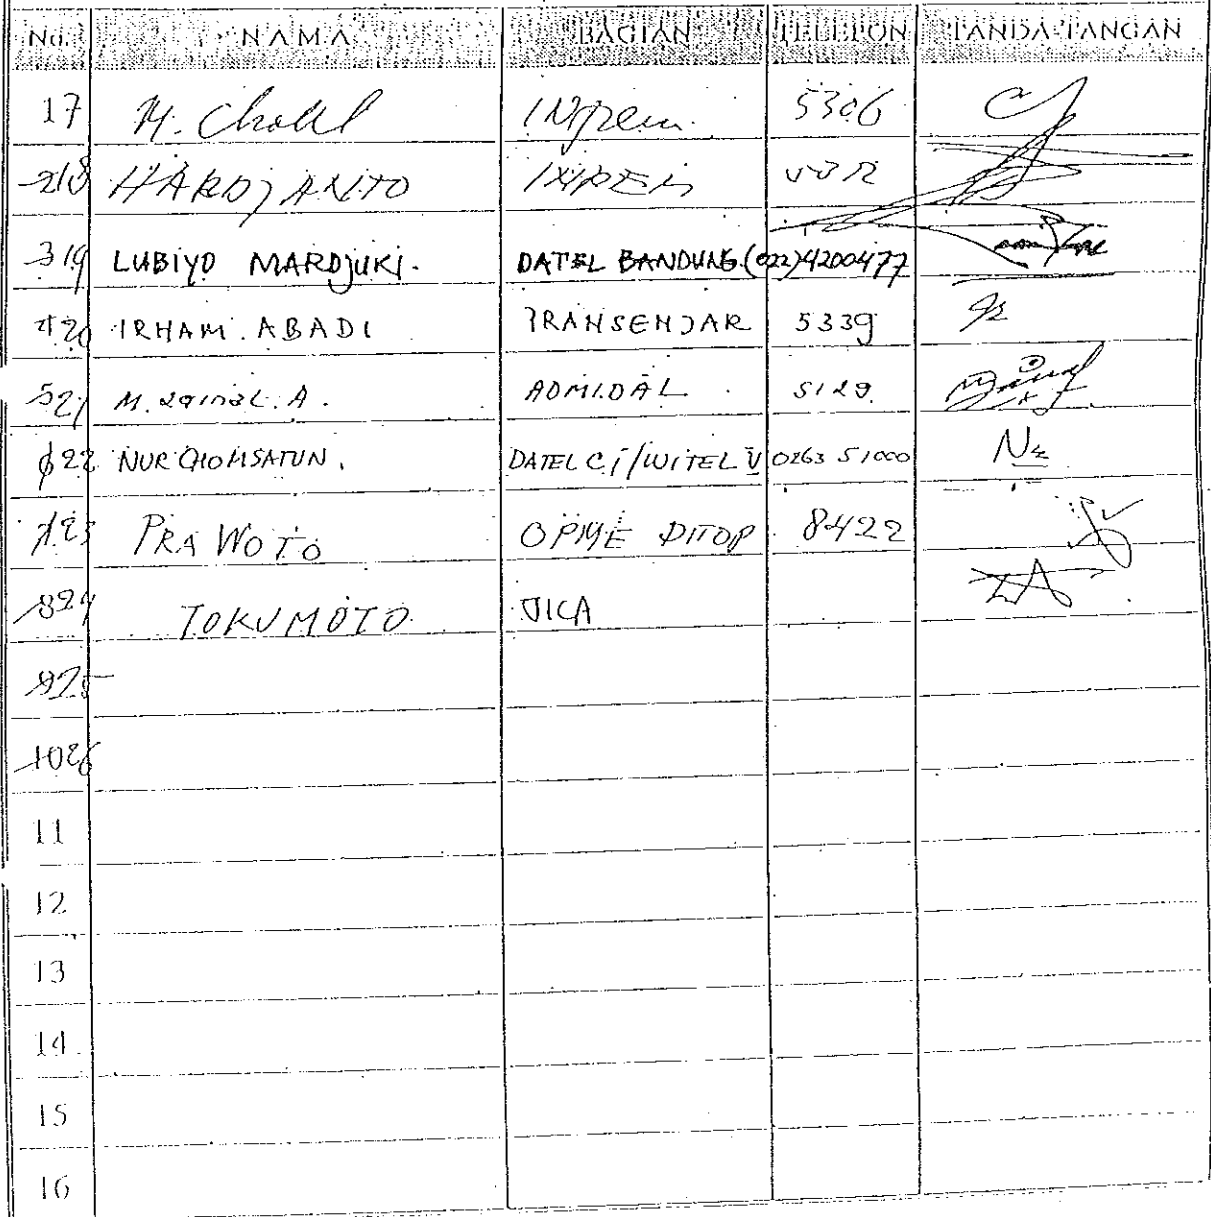 No. NAMA BAGIAN TELEPON TANDA TANGAN
17 M. 5306
218 HARDJANTO
319 LUBIYO MARDJUKI. DATEL BANDUNG (022)4200477
420 IRHAM. ABADI TRANSENJAR 5339
521 M. ZAINAL. A. ADMIDAL 5129.
622 NUR CHOMSATUN. DATEL CJ/WITEL V 0263 51000
723 PRAWOTO OPME DITOP 8422
824 TOKUMOTO JICA
925
1026
11
12
13
14
15
16